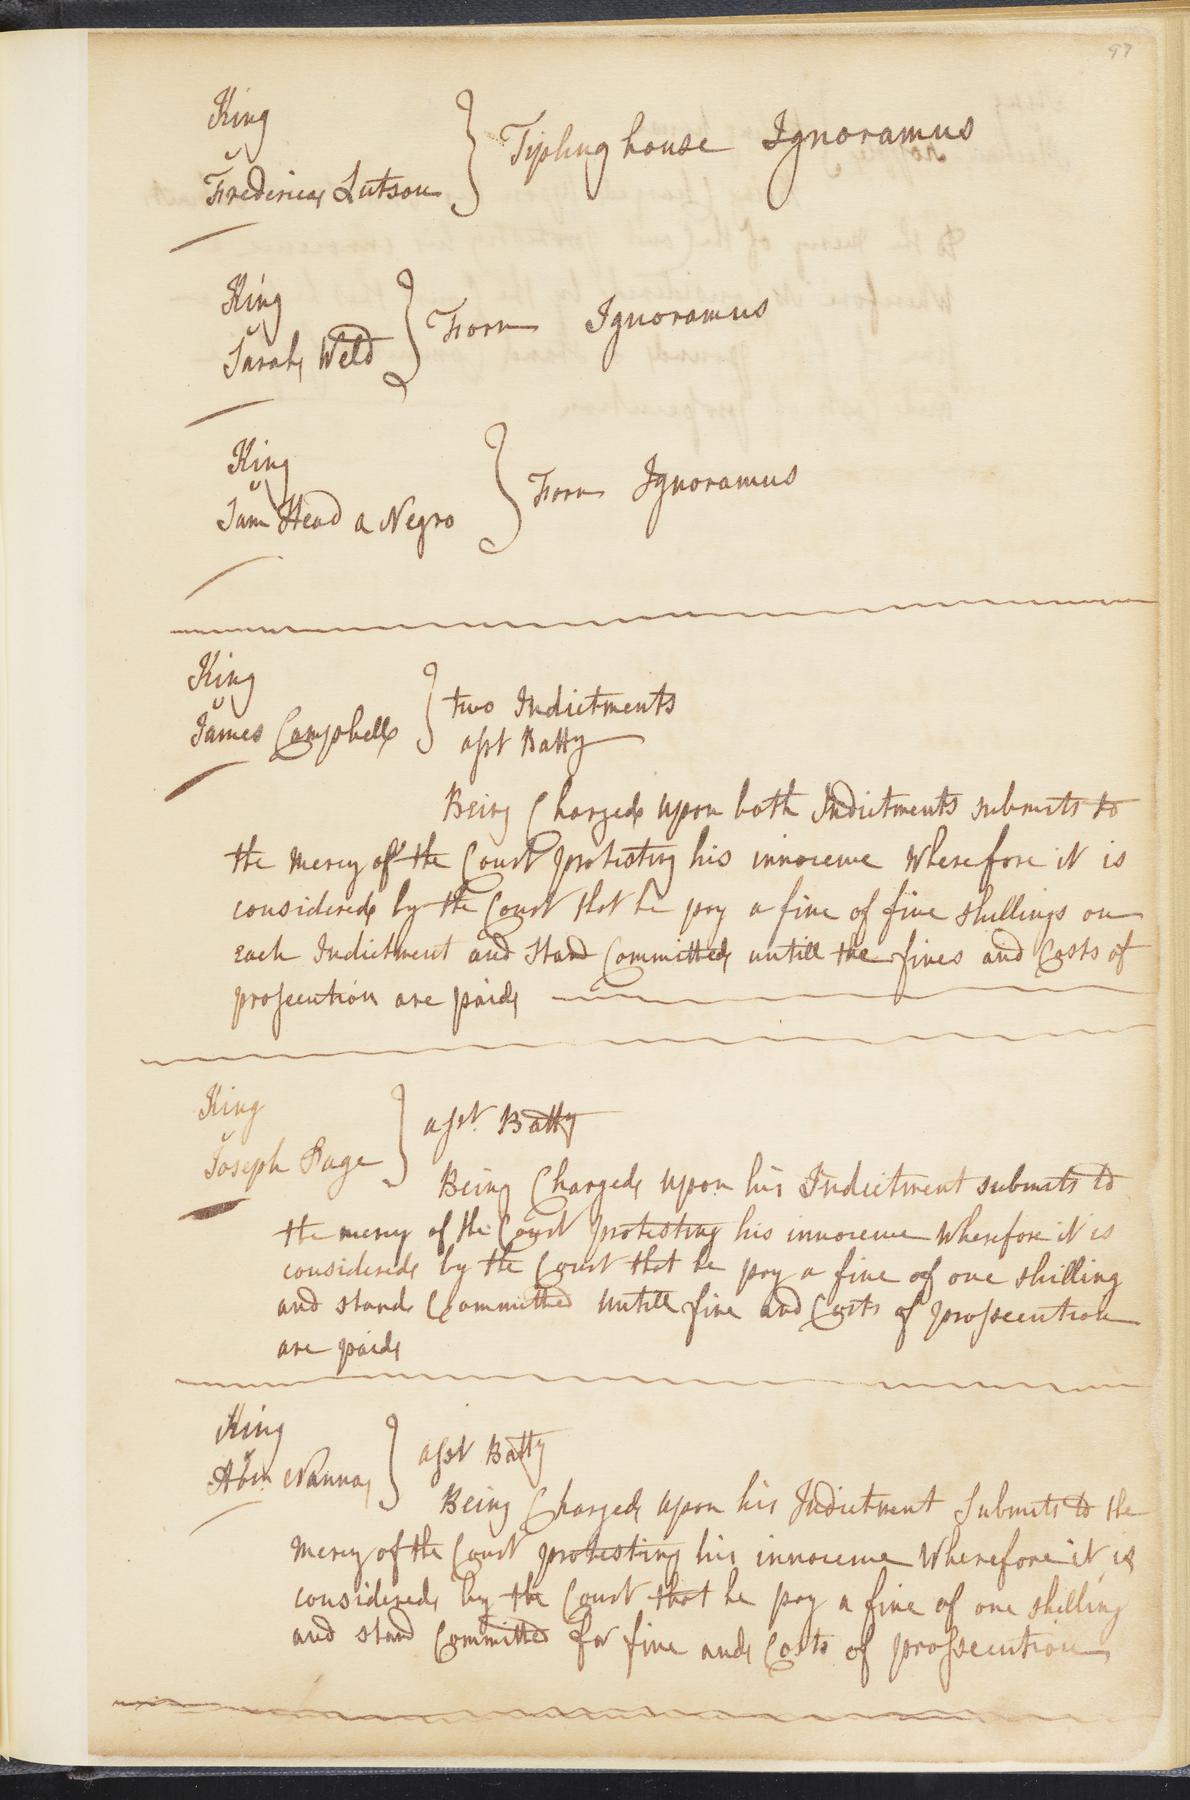 97
King
v
Frederick Lutson } Tipling house Ignoramus
King
v
Sarah Weld } Forn Ignoramus
King
v
Sam Head a Negro } Forn Ignoramus
King
v
James Campbell } two Indictments
asst Batty
Being Charged upon both Indictments submits to
the mercy of the Court protesting his innocence Wherefore it is
considered by the Court that he pay a fine of five shillings on
Each Indictment and Stand Committed untill the fines and Costs of
prosecution are paid
King
v
Joseph Page } asst. Batty
Being Charged upon his Indictment submits to
the mercy of the Court protesting his innocence Wherefore it is
considered by the Court that he pay a fine of one shilling
and stand Committed untill fine and Costs of prossecution
are paid
King
v
Abm Nanna } asst Batty
Being Charged upon his Indictment Submits to the
mercy of the Court protesting his innocence Wherefore it is
considered by the Court that he pay a fine of one shilling
and stand Committed for fine and Costs of prossecution